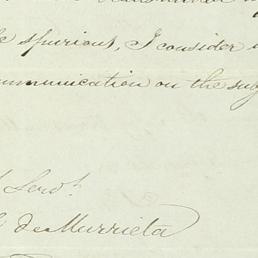 spurious, I consider
mmunication on the sug
Servt.
de Murrieta